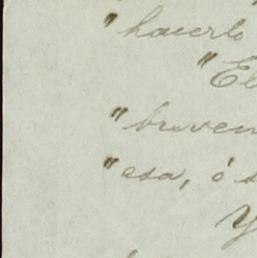 "hacerlo
"El
"breven
"esa, ó s
Y